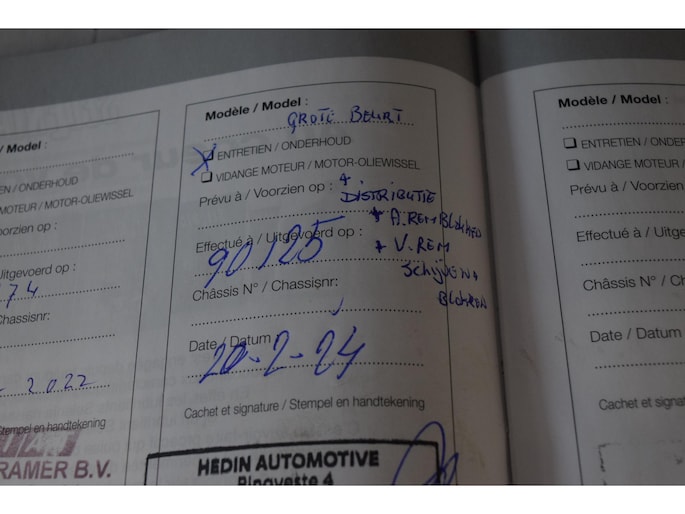 / Model :
EN / ONDERHOUD
MOTEUR / MOTOR-OLIEWISSEL
oorzien op :
Uitgevoerd op :
74
Chassisnr:
2022
Stempel en handtekening
RAMER B.V.
Modèle / Model :
GROTE BEURT
X ENTRETIEN / ONDERHOUD
VIDANGE MOTEUR / MOTOR-OLIEWISSEL
Prévu à / Voorzien op : +
DISTRIBUTIE
+ A.REM BLOKKEN
Effectué à / Uitgevoerd op :
90125
+ V.REM
SCHIJVEN +
BLOKKEN
Châssis N° / Chassisnr:
Date / Datum
20-2-24
Cachet et signature / Stempel en handtekening
HEDIN AUTOMOTIVE
Ringveste 4
Modèle / Model :
ENTRETIEN / ONDERHOUD
VIDANGE MOTEUR /
Prévu à / Voorzien op :
Effectué à / Uitge
Châssis N° / Chassisnr:
Date / Datum
Cachet et signature / Stem